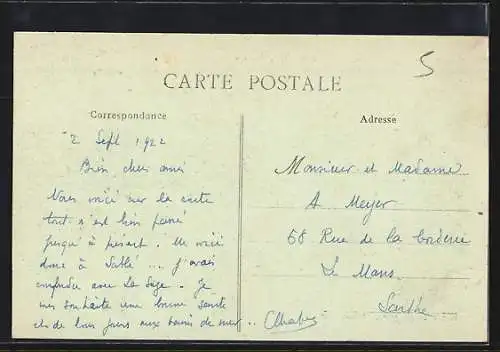 5
CARTE POSTALE
Correspondance
Adresse
2 Sept 1922
Bien chers amis
Nous voici sur la route
tout s'est bien passé
jusqu'à présent. Me voici
donc à Sablé ... J'avais
confondu avec La Suze. Je
vous souhaite une bonne santé
et de bons jours aux bains de mer ..
Monsieur et Madame
A Meyer
68 Rue de la
Le Mans
Sarthe